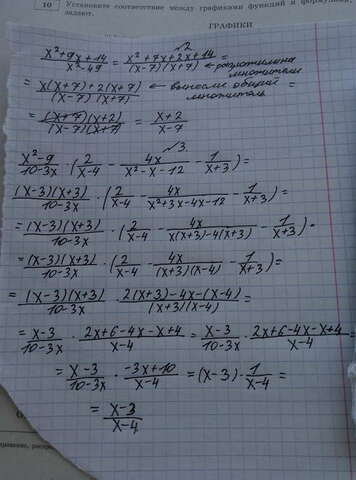 10 Установите соответствие между графиками функций и формулами,
задают.
ГРАФИКИ
√2
x²+9x+14 / x²-49 = x²+7x+2x+14 / (x-7)(x+7) ← разложили на множители =
= x(x+7)+2(x+7) / (x-7)(x+7) ← вынесли общий множитель =
= (x+7)(x+2) / (x-7)(x+7) = x+2 / x-7
√3.
x²-9 / 10-3x · (2 / x-4 - 4x / x²-x-12 - 1 / x+3) =
= (x-3)(x+3) / 10-3x · (2 / x-4 - 4x / x²+3x-4x-12 - 1 / x+3) =
= (x-3)(x+3) / 10-3x · (2 / x-4 - 4x / x(x+3)-4(x+3) - 1 / x+3) =
= (x-3)(x+3) / 10-3x · (2 / x-4 - 4x / (x+3)(x-4) - 1 / x+3) =
= (x-3)(x+3) / 10-3x · 2(x+3)-4x-(x-4) / (x+3)(x-4) =
= x-3 / 10-3x · 2x+6-4x-x+4 / x-4 = x-3 / 10-3x · 2x+6-4x-x+4 / x-4 =
= x-3 / 10-3x · -3x+10 / x-4 = (x-3) · 1 / x-4 =
= x-3 / x-4